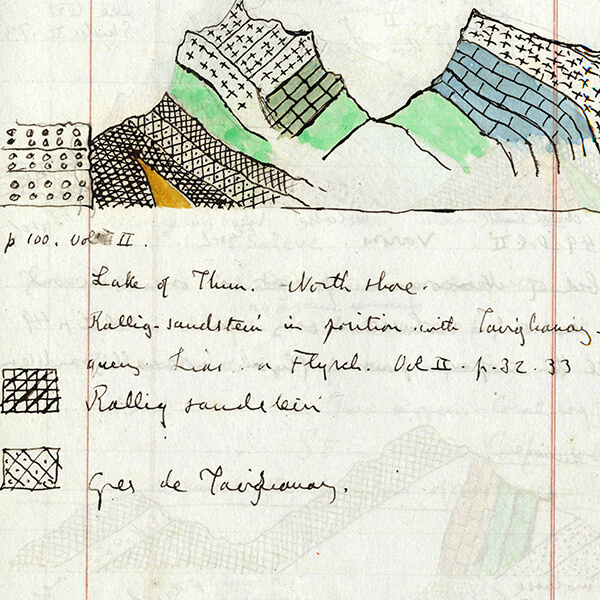 p 100. Vol II.
Lake of Thun. North shore.
Rallig-sandstein in position with Taviglianaz-
Lias or Flysch. Vol II. p. 32. 33
Rallig sandstein
Gres de Taviglianaz.